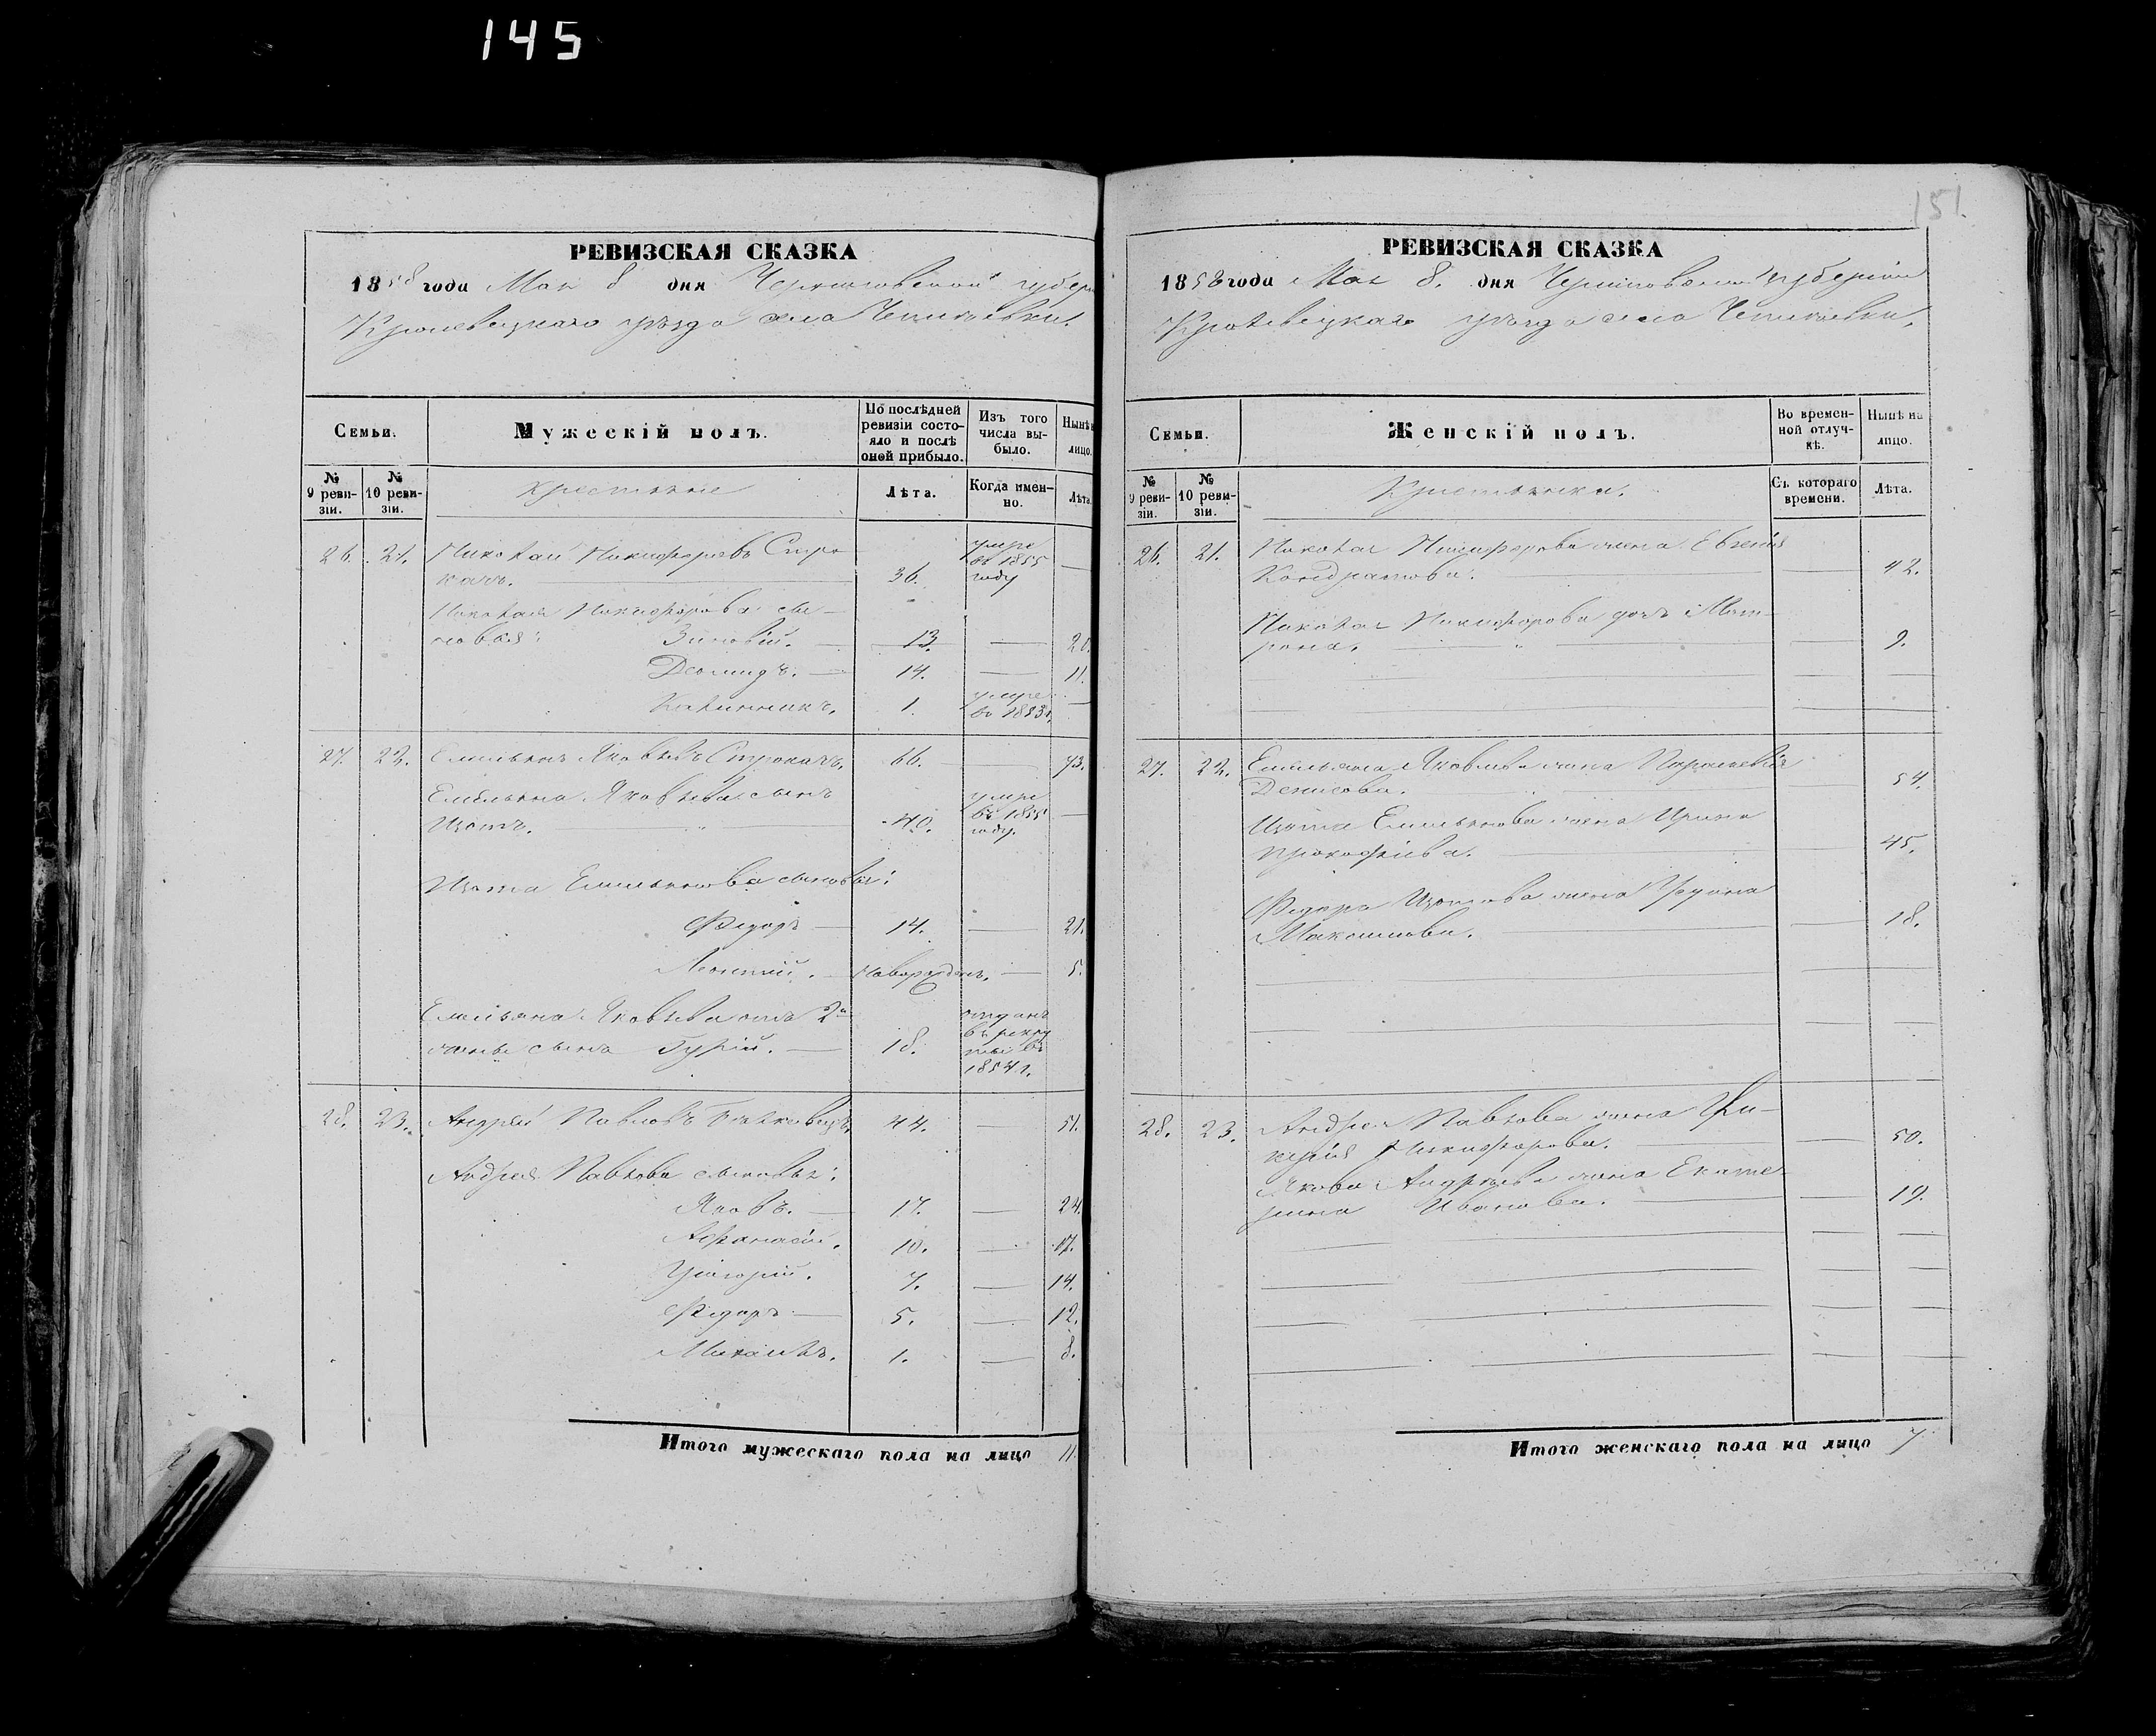 145
РЕВИЗСКАЯ СКАЗКА
1858 года Мая 8 дня Черниговской губер
Кролевецкаго уѣзда села
Семьи. Мужескій полъ. По послѣдней ревизіи состояло и послѣ оной прибыло. Изъ того числа выбыло. Нынѣ лицо.
№ 9 ревизіи. № 10 ревизіи. Крестьяне Лѣта. Когда именно. Лѣта.
26. 21. Николай Никифоровъ Стро
качъ. 36. умре въ 1855 году
Николая Никифорова сы
новья: Зиновій. 13. — 20.
14. — 11.
Калинникъ. 1. умре въ 1853 г.
27. 22. Емельянъ Яковлевъ Строкачъ. 66. — 73.
Емельяна Яковлева сынъ
Изотъ. 40. умре въ 1855 году.
Изота Емельянова сыновья:
Федоръ — 14. — 21.
Леонтій. — новорожденъ. — 5.
Емельяна Яковлева отъ 2й
жены сынъ Гурій. — 18. отданъ въ рекруты въ 1854 г.
28. 23. Андрей Павловъ 44. — 51.
Андрея Павлова сыновья:
Яковъ. — 17. — 24.
Афанасій. 10. — 17.
Григорій. 7. — 14.
Федоръ — 5. — 12.
Михаилъ. 1. — 8.
Итого мужескаго пола на лицо 11.
151.
РЕВИЗСКАЯ СКАЗКА
1858 года Мая 8. дня Черниговской губерніи
Кролевецкаго уѣзда села
Семьи. Женскій полъ. Во временной отлучкѣ. Нынѣ на лицо.
№ 9 ревизіи. № 10 ревизіи. Крестьянки. Съ котораго времени. Лѣта.
26. 21. Николая Никифорова жена Евгенія
Кондратова. — 42.
Николая Никифорова дочь Мат
рона. — 9.
27. 22. Емельяна Яковлева жена Параскевія
Денисова. — 54.
Изота Емельянова жена Ирина
Прокофіева. — 45.
Федора Изотова жена
Максимова. — 18.
28. 23. Андрея Павлова жена Гли-
керія Никифорова. — 50.
Якова Андреева жена Екате
рина Иванова. — 19.
Итого женскаго пола на лицо 7.